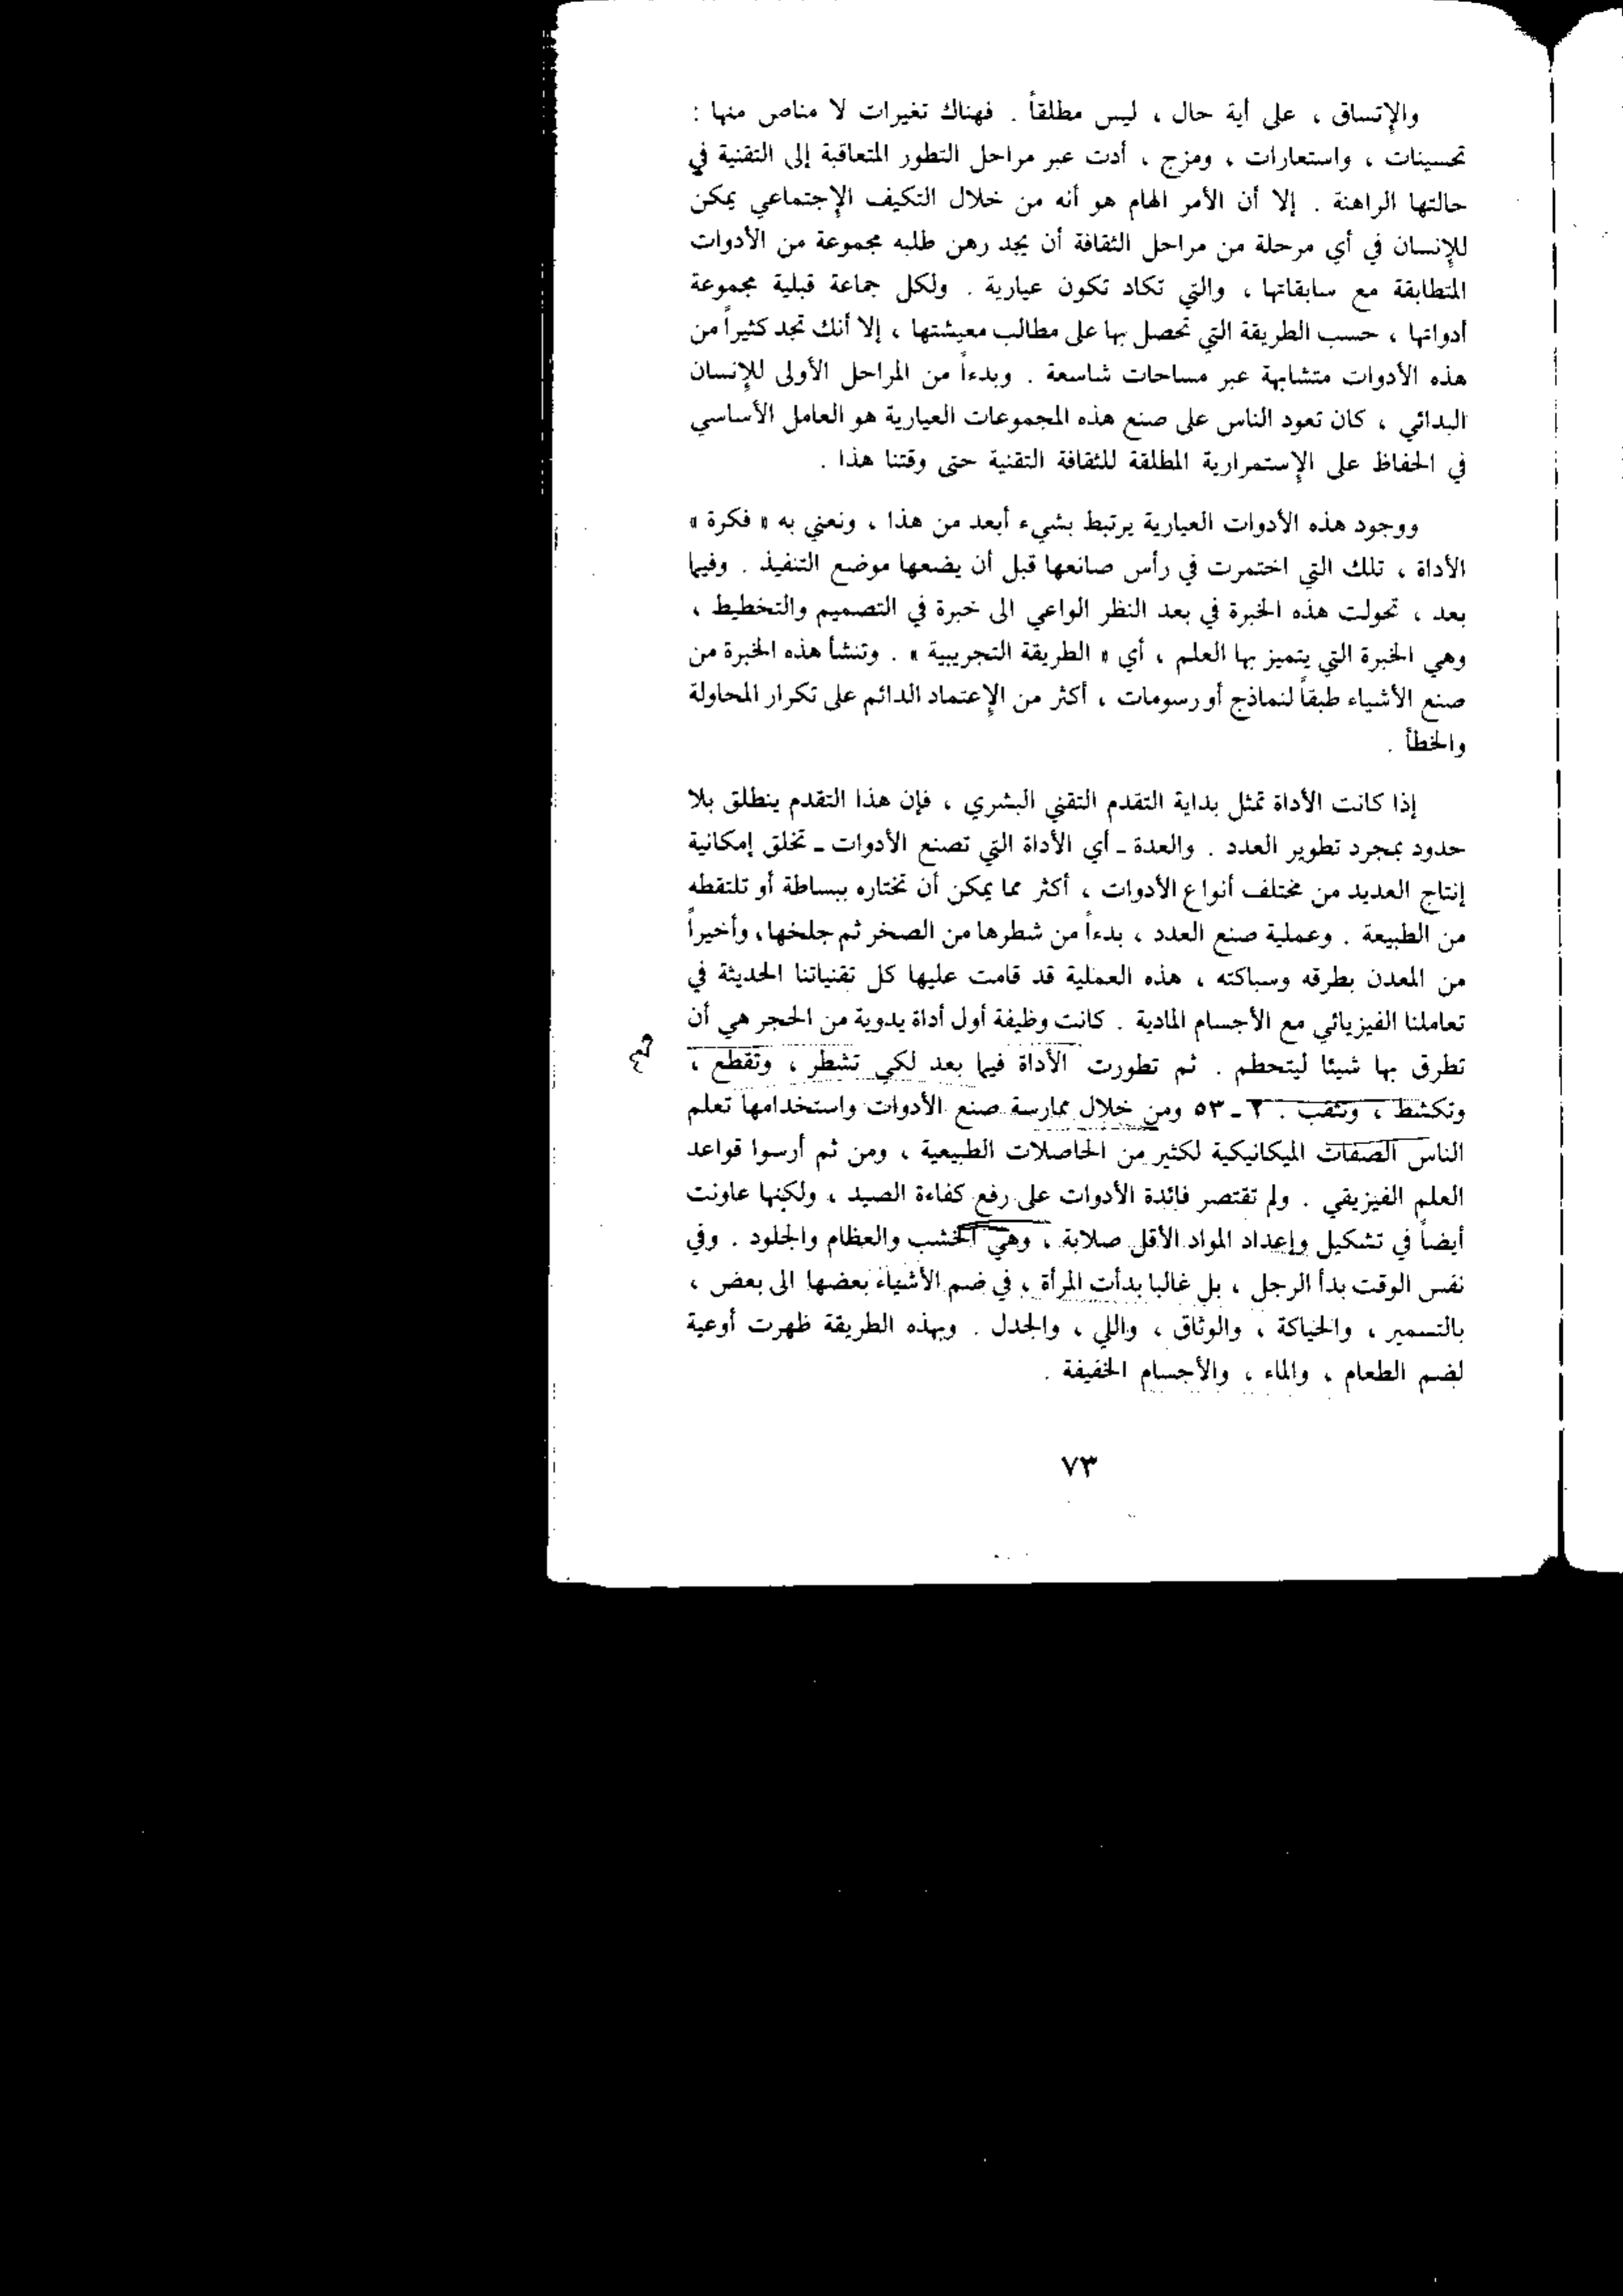 والإتساق ، على أية حال ، ليس مطلقاً . فهناك تغيرات لا مناص منها :
تحسينات ، واستعارات ، ومزج ، أدت عبر مراحل التطور المتعاقبة إلى التقنية في
حالتها الراهنة . إلا أن الأمر الهام هو أنه من خلال التكيف الإجتماعي يمكن
للإنسان في أي مرحلة من مراحل الثقافة أن يجد رهن طلبه مجموعة من الأدوات
المتطابقة مع سابقاتها ، والتي تكاد تكون عيارية . ولكل جماعة قبلية مجموعة
أدواتها ، حسب الطريقة التي تحصل بها على مطالب معيشتها ، إلا أنك تجد كثيراً من
هذه الأدوات متشابهة عبر مساحات شاسعة . وبدءاً من المراحل الأولى للإنسان
البدائي ، كان تعود الناس على صنع هذه المجموعات العيارية هو العامل الأساسي
في الحفاظ على الإستمرارية المطلقة للثقافة التقنية حتى وقتنا هذا .
ووجود هذه الأدوات العيارية يرتبط بشيء أبعد من هذا ، ونعني به « فكرة »
الأداة ، تلك التي اختمرت في رأس صانعها قبل أن يضعها موضع التنفيذ . وفيما
بعد ، تحولت هذه الخبرة في بعد النظر الواعي الى خبرة في التصميم والتخطيط ،
وهي الخبرة التي يتميز بها العلم ، أي « الطريقة التجريبية » . وتنشأ هذه الخبرة من
صنع الأشياء طبقاً لنماذج أو رسومات ، أكثر من الإعتماد الدائم على تكرار المحاولة
والخطأ .
إذا كانت الأداة تمثل بداية التقدم التقني البشري ، فإن هذا التقدم ينطلق بلا
حدود بمجرد تطوير العدد . والعدة ـ أي الأداة التي تصنع الأدوات ـ تخلق إمكانية
إنتاج العديد من مختلف أنواع الأدوات ، أكثر مما يمكن أن تختاره ببساطة أو تلتقطه
من الطبيعة . وعملية صنع العدد ، بدءاً من شطرها من الصخر ثم جلخها، وأخيراً
من المعدن بطرقه وسباكته ، هذه العملية قد قامت عليها كل تقنياتنا الحديثة في
تعاملنا الفيزيائي مع الأجسام المادية . كانت وظيفة أول أداة يدوية من الحجر هي أن
تطرق بها شيئا ليتحطم . ثم تطورت الأداة فيما بعد لكي تشطر ، وتقطع ،
وتكشط ، وتثقب . ٢ ـ ٥٣ ومن خلال ممارسة صنع الأدوات واستخدامها تعلم
الناس الصفات الميكانيكية لكثير من الحاصلات الطبيعية ، ومن ثم أرسوا قواعد
العلم الفيزيقي . ولم تقتصر فائدة الأدوات على رفع كفاءة الصيد ، ولكنها عاونت
أيضاً في تشكيل وإعداد المواد الأقل صلابة ، وهي الخشب والعظام والجلود . وفي
نفس الوقت بدأ الرجل ، بل غالبا بدأت المرأة ، في ضم الأشياء بعضها الى بعض ،
بالتسمير ، والحياكة ، والوثاق ، واللي ، والجدل . وبهذه الطريقة ظهرت أوعية
لضم الطعام ، والماء ، والأجسام الخفيفة .
٧٣